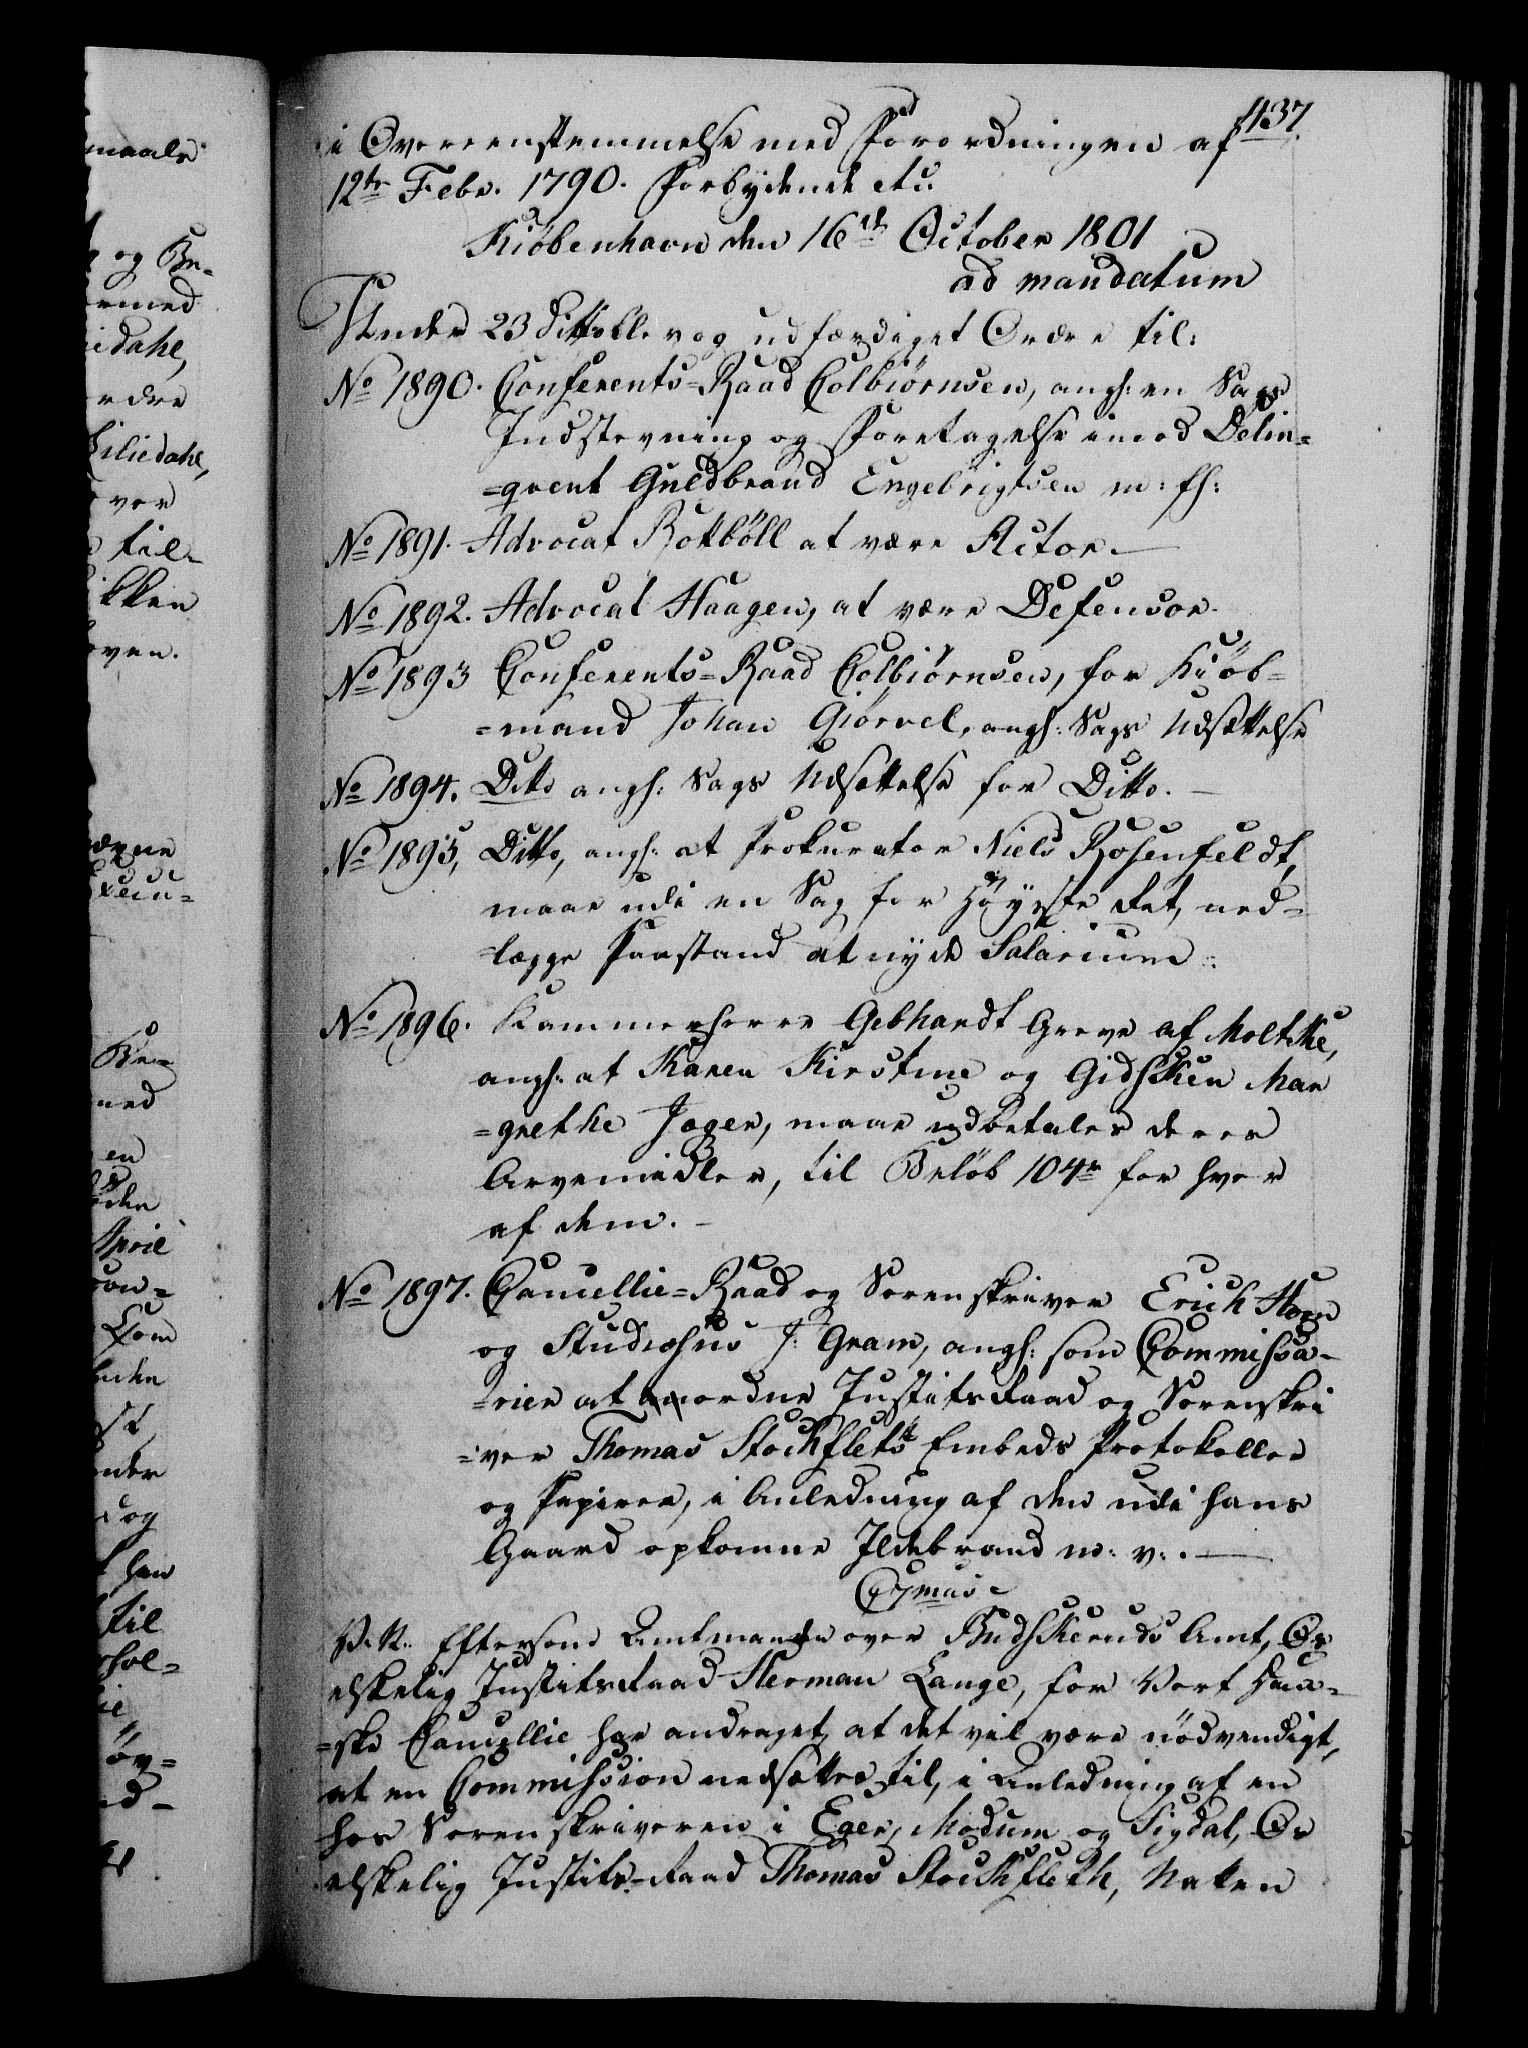 1137.
i Overeenstemmelse med Forordningen af
12te Febr. 1790. Forbydende etc:
Kiöbenhavn den 16de October 1801
ad mandatum
Under 23 Ditto blev og udfærdiget Ordre til:
No 1890. Conferents-Raad Colbiörnsen, angl: en Sags
Indstevning og Foretagelse imod Delin=
=qvent Guldbrand Engebrigtsen m: fl:
No 1891. Advocat Rottböll at være Actor.
No 1892. Advocat Haagen, at være Defensor.
No 1893 Conferents=Raad Colbiörnsen, for Kiöb=
=mand Johan Giörvel, angl: Sags Udsættelse
No 1894. Ditto angl: Sags Udsættelse for Ditto.
No 1895, Ditto, angl: at Prokurator Niels Rosenfeldt,
maae udi en Sag for Höyeste Ret, ned=
=lægge Paastand at nyde Salarium.
No 1896. Kammerherre Gebhardt Greve af Moltke,
angl: at Karen Kirstine og Gidsken Mar
=grethe Jæger, maae udbetales deres
Arvemidler, til Belöb 104r for hver
af dem.
No 1897. Cancellie=Raad og Sorenskriver Erich
og Studiosus J: Gram, angl: som Commissa-
=rier at ordne Justitsraad og Sorenskri
=ver Thomas Stockflets Embeds Protokoller
og Papirer, i Anledning af den udi hans
Gaard opkomne Ildebrand m: v:.
C: 7mus
V. A. Eftersom Amtmanden over Budskeruds Amt, Os
elskelig Justitsraad Herman Lange, for Vort Dan-
=ske Cancellie har andraget, at det vil være nödvendigt,
at en Commission nedsættes til, i Anledning af en
hos Sorenskriveren i Eger, Modum og Sigdal, Os
elskelig Justits-Raad Thomas Stockfleth, Natten